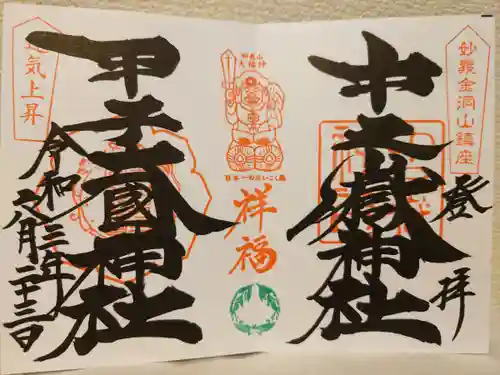 妙義金洞山鎮座
登拝
中之嶽神社
祥福
甲子大國神社
運気上昇
令和三年
八月二十三日